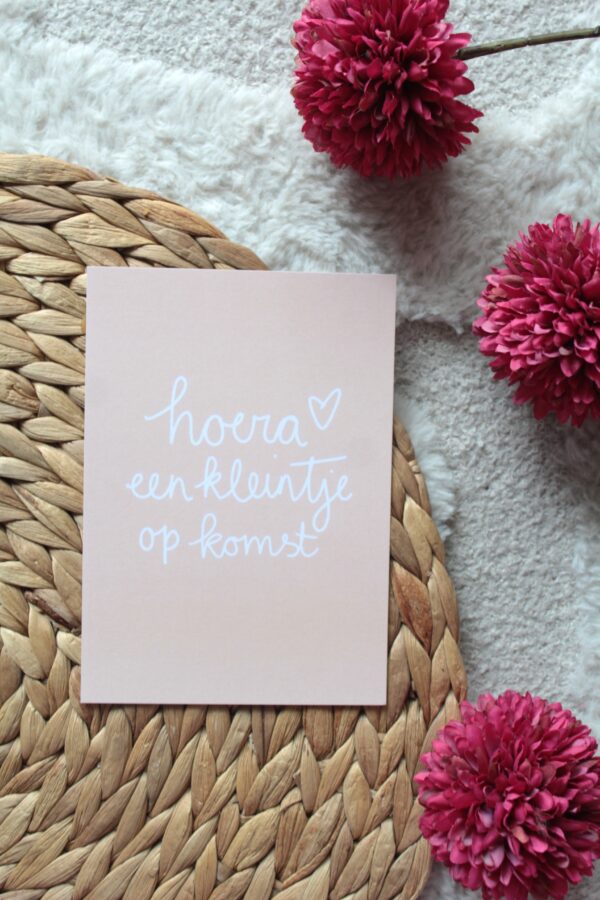 hoera
een kleintje
op komst